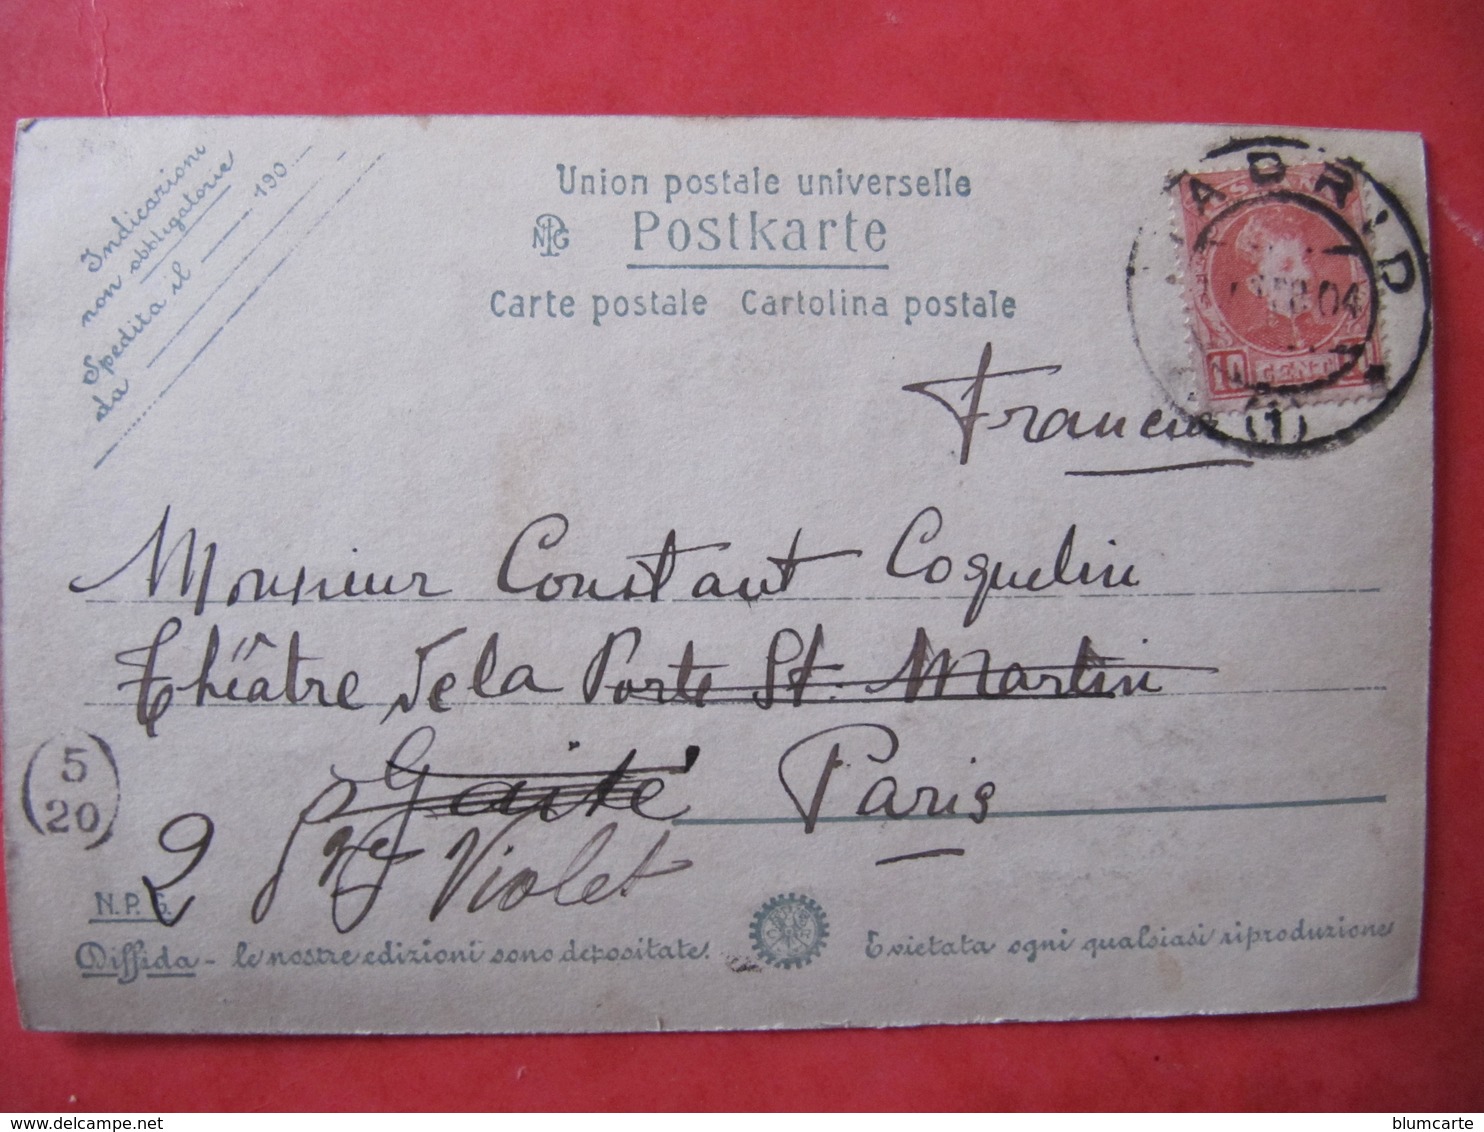 Indicazioni
non obbligatorie
Spedita il 190
da
Union postale universelle
NPG Postkarte
Carte postale Cartolina postale
MADRID
04
10 CENT
(1)
Francia
Monsieur Constant Coquelin
Théâtre de la Porte St. Martin
Gaité Paris
5
20
2 Violet
N.P.G.
Diffida - le nostre edizioni sono depositate. E vietata ogni qualsiasi riproduzione
blumcarte